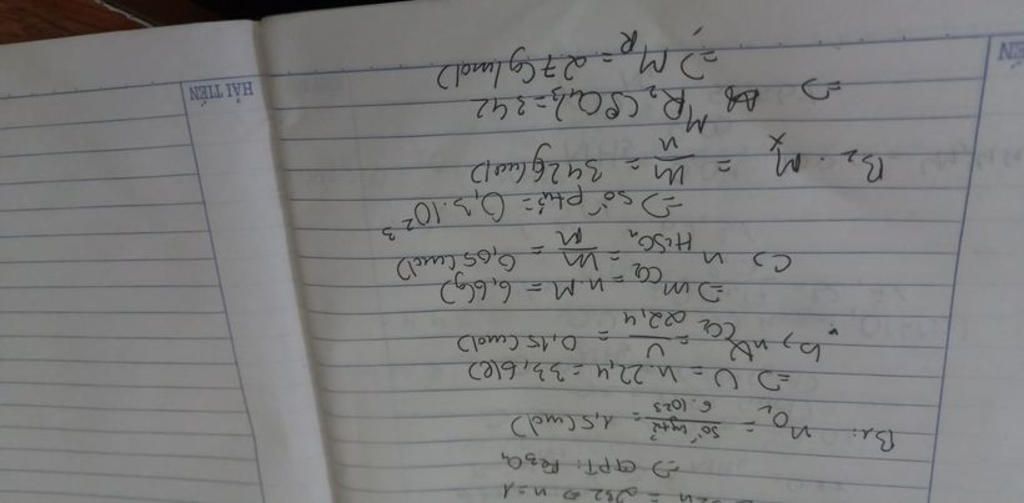 = 232 => n = 1
=> CTPT: Fe3O4
B1: nO2 = số ngtử / 6.10^23 = 1,5 (mol)
=> V = n.22,4 = 33,6 (l)
b, nCO2 = V / 22,4 = 0,15 (mol)
=> mCO2 = n.M = 6,6 (g)
c, nH2SO4 = m / M = 0,05 (mol)
=> số ptử = 0,3.10^23
B2. Mx = m / n = 342 g (mol)
=> MR2(SO4)3 = 342
=> MR = 27 (g/mol)
HẢI TIẾN